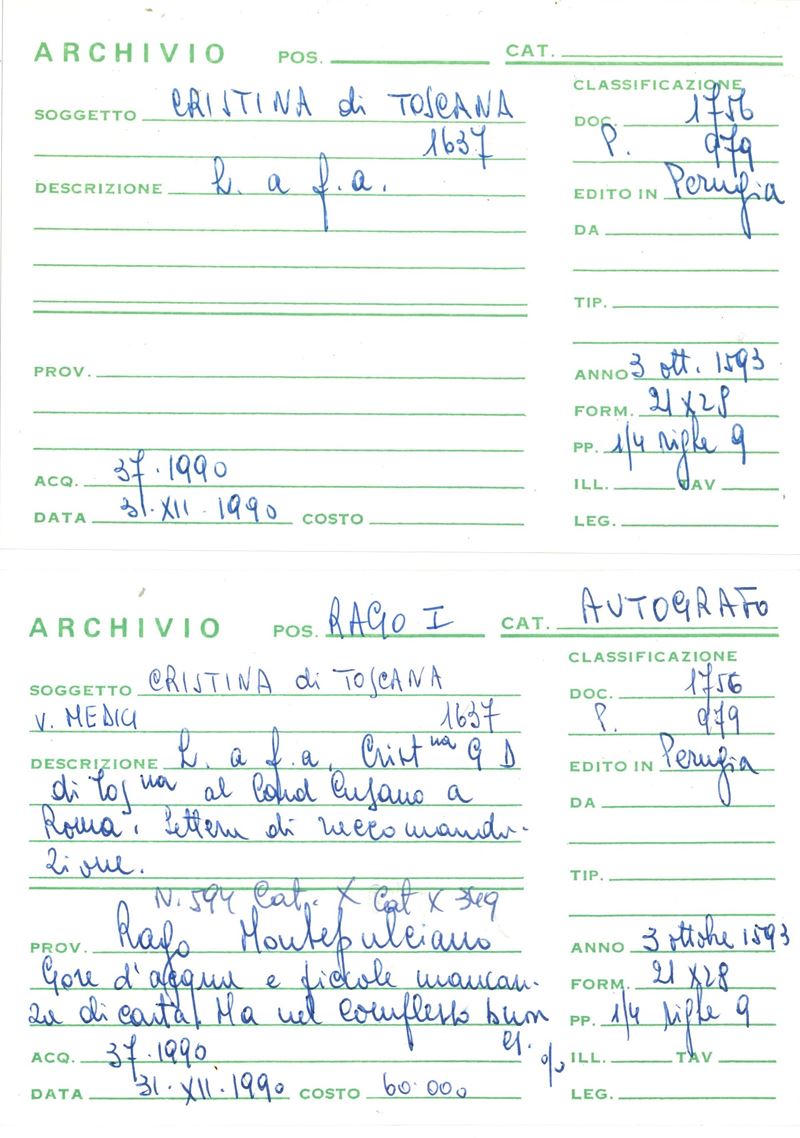 ARCHIVIO POS. CAT.
CLASSIFICAZIONE
SOGGETTO CRISTINA di TOSCANA
DOC. 1756
1637
P. 979
DESCRIZIONE L. a f.a.
EDITO IN Perugia
DA
TIP.
PROV.
ANNO 3 ott. 1593
FORM. 21 x 28
PP. 1/4 righe 9
ACQ. 37.1990
ILL. TAV
DATA 31.XII.1990 COSTO
LEG.
ARCHIVIO POS. RAGO I CAT. AUTOGRAFO
CLASSIFICAZIONE
SOGGETTO CRISTINA di TOSCANA
DOC. 1756
v. MEDICI 1637
P. 979
DESCRIZIONE L. a f.a. Crist.na G D
EDITO IN Perugia
di Tosna al Card Cusano a
DA
Roma. Lettera di raccomanda-
zione.
TIP.
N. 594 Cat. X Cat X 349
PROV. Rago Montepulciano
ANNO 3 ottobre 1593
Gore d'acqua e piccole mancan-
FORM. 21 x 28
ze di carta. Ma nel complesso buon
PP. 1/4 righe 9
es.
ACQ. 37.1990
ILL. TAV
DATA 31.XII.1990 COSTO 60.000
LEG.